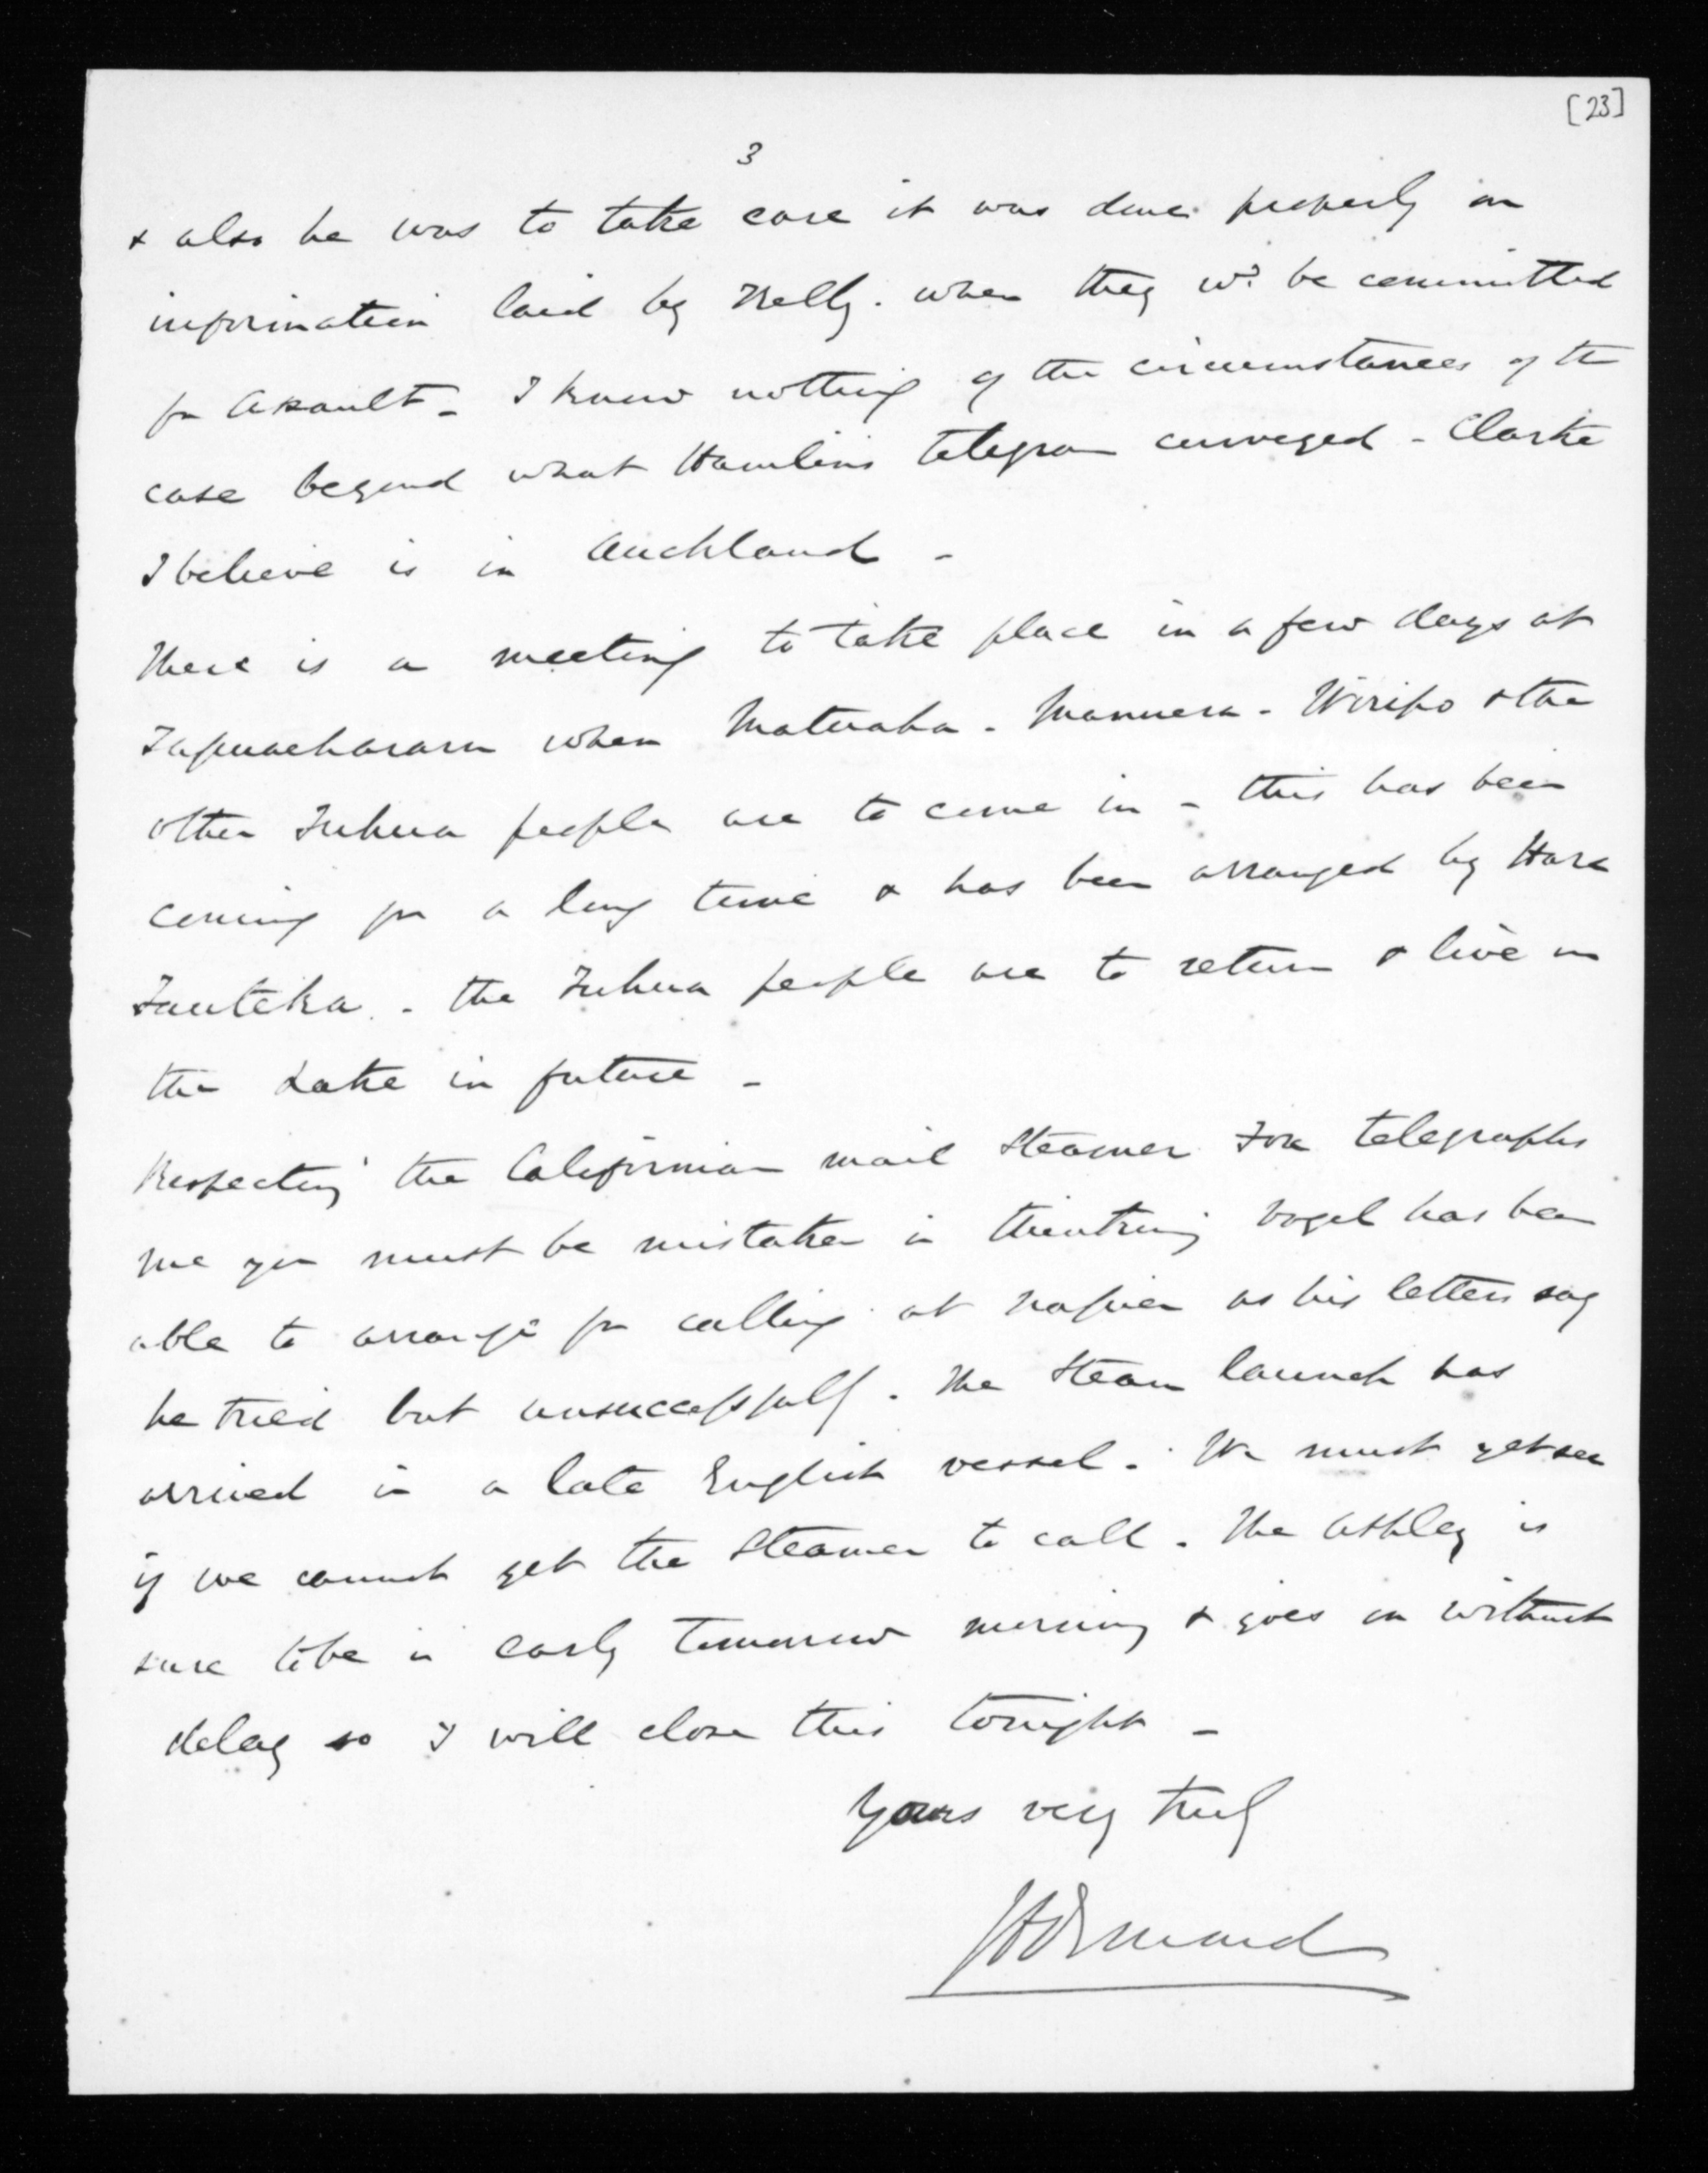 [23]
3
& also he was to take care it was done properly on
information laid by Kelly. when they wd. be committed
for assault - I know nothing of the circumstances of the
case beyond what Hamlins telegram conveyed - Clarke
I believe is in Auckland -
There is a meeting to take place in a few days at
Tapuaeharuru when Matuaha - Manuera - Wiripo & the
other Tuhua people are to come in - this has been
coming for a long time & has been arranged by Hare
Tauteka - the Tuhua people are to return & live on
the Lake in future -
Respecting the Californian mail steamer Fox telegraphs
me you must be mistaken in thinking Vogel has been
able to arrange for calling at Napier as his letters say
he tried but unsuccessfully. The Steam launch has
arrived in a late English vessel. We must yet see
if we cannot get the steamer to call. The Ashley is
sure to be in early tomorrow morning & goes on without
delay so I will close this tonight -
Yours very truly
JD Ormond